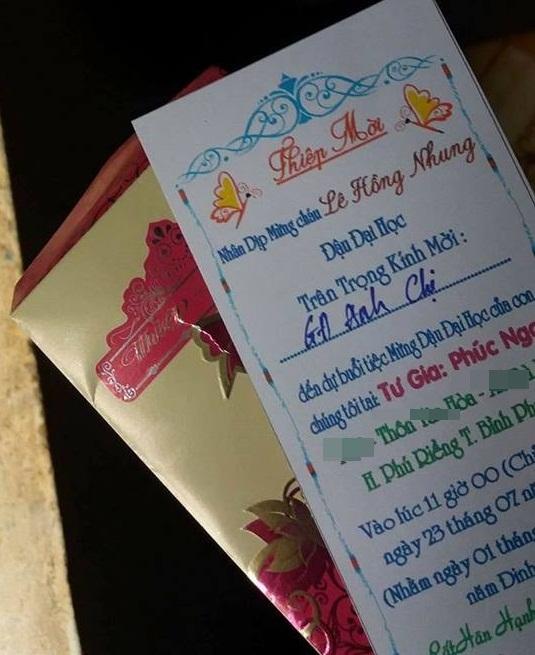 Thiệp Mời
Nhân Dịp Mừng cháu Lê Hồng Nhung
Đậu Đại Học
Trân Trọng Kính Mời :
GĐ Anh Chị
đến dự buổi tiệc Mừng Đậu Đại Học của con
chúng tôi tại: Tư Gia: Phúc
Thôn Hòa -
H. Phú Riềng T. Bình
Vào lúc 11 giờ 00
ngày 23 tháng 07
(Nhằm ngày 01 tháng
năm Đinh
Rất Hân Hạnh